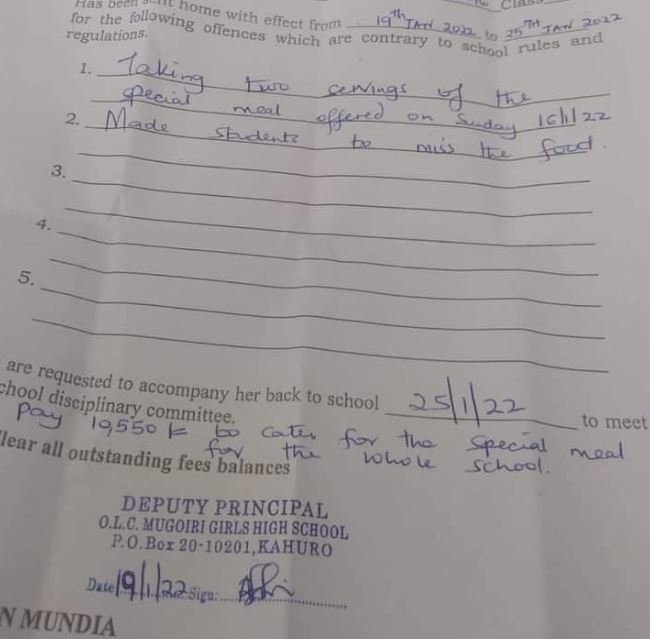 Has been sent home with effect from 19th JAN 2022 to 25TH JAN 2022
for the following offences which are contrary to school rules and
regulations.
1. Taking two servings of the
special meal offered on Sunday 16/1/22
2. Made students to miss the food.
3.
4.
5.
are requested to accompany her back to school 25/1/22 to meet
chool disciplinary committee.
Pay 19,550 to cater for the special meal
for the whole school.
lear all outstanding fees balances
DEPUTY PRINCIPAL
O.L.C. MUGOIRI GIRLS HIGH SCHOOL
P.O.Box 20-10201,KAHURO
Date 19/1/22 Sign:
N MUNDIA